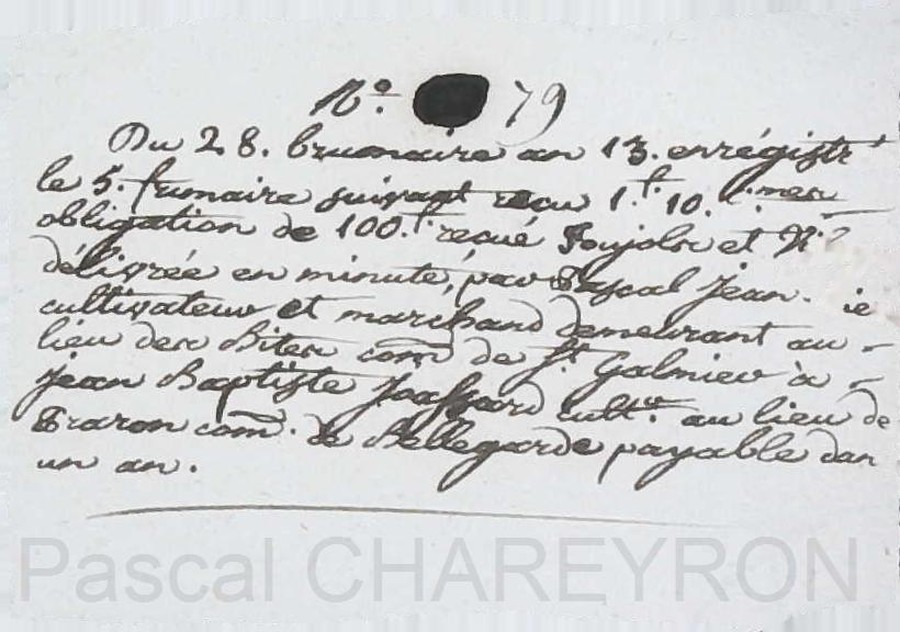 N° 79
Du 28. brumaire an 13. enrégistr
le 5. frimaire suivant recu 1.f 10.c mer
obligation de 100.f reçue Joujols et N.
délivrée en minute, par Pascal Jean. ie
cultivateur et marchand demeurant au
lieu des Bites com de St. Galmier à
Jean Baptiste Joassard cult.r au lieu de
com. de Bellegarde payable dan
un an.
Pascal CHAREYRON